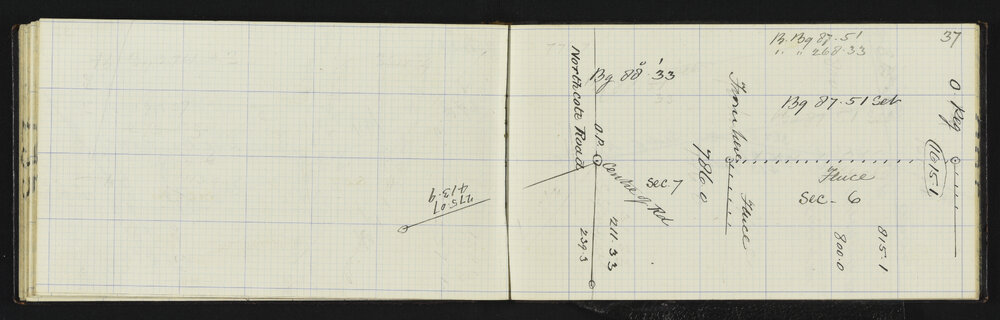 275.07
413.9
Northcote Road
Bg 88° 33'
O.P.
Centre of Rd
211.33
239.3
Sec. 7
From here
786.0
Fence
B. Bg 87.51
" " 268.33
37
Bg 87.51 Set
O. Peg
1615.1
Fence
Sec. 6
815.1
800.0